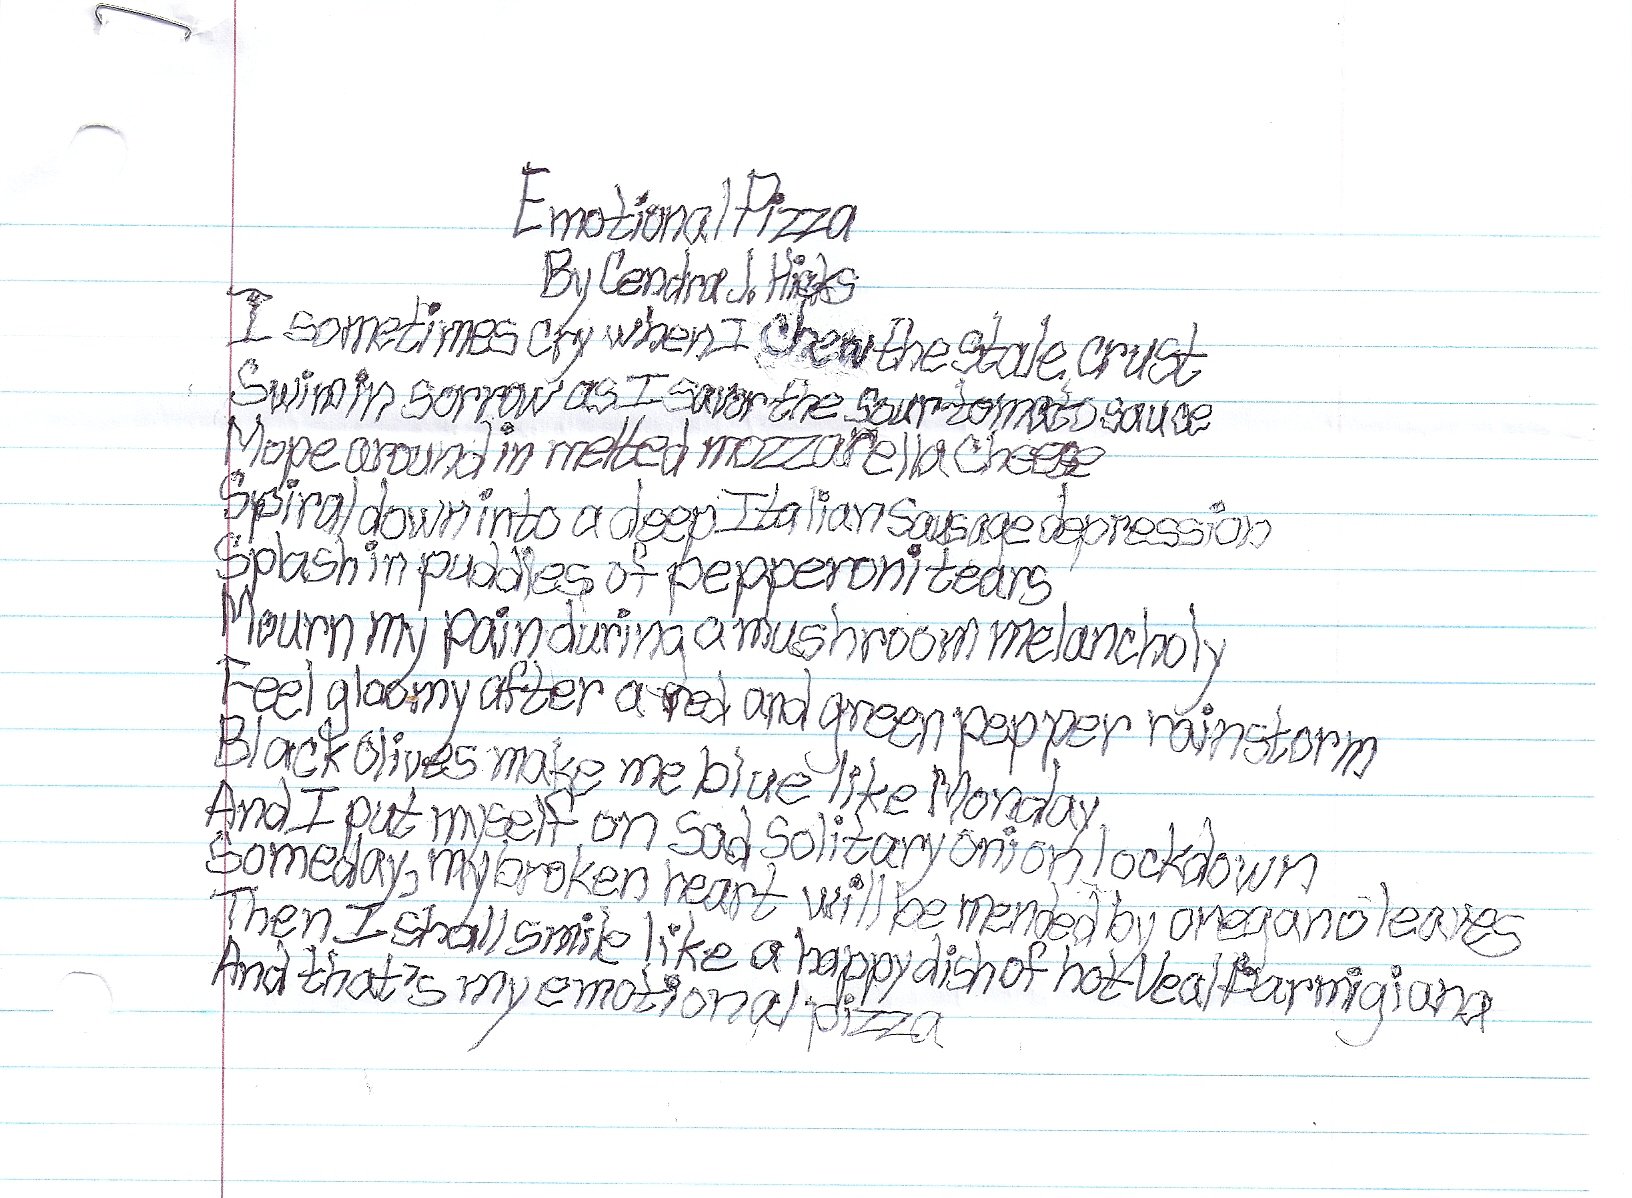 Emotional Pizza
By Cendra J. Hicks
I sometimes cry when I chew the stale crust
Swim in sorrow as I savor the sour tomato sauce
Mope around in melted mozzarella cheese
Spiral down into a deep Italian Sausage depression
Splash in puddles of pepperoni tears
Mourn my pain during a mushroom melancholy
Feel gloomy after a red and green pepper rainstorm
Black olives make me blue like Monday
And I put myself on sad solitary onion lockdown
Someday, my broken heart will be mended by oregano leaves
Then I shall smile like a happy dish of hot Veal Parmigiana
And that's my emotional pizza